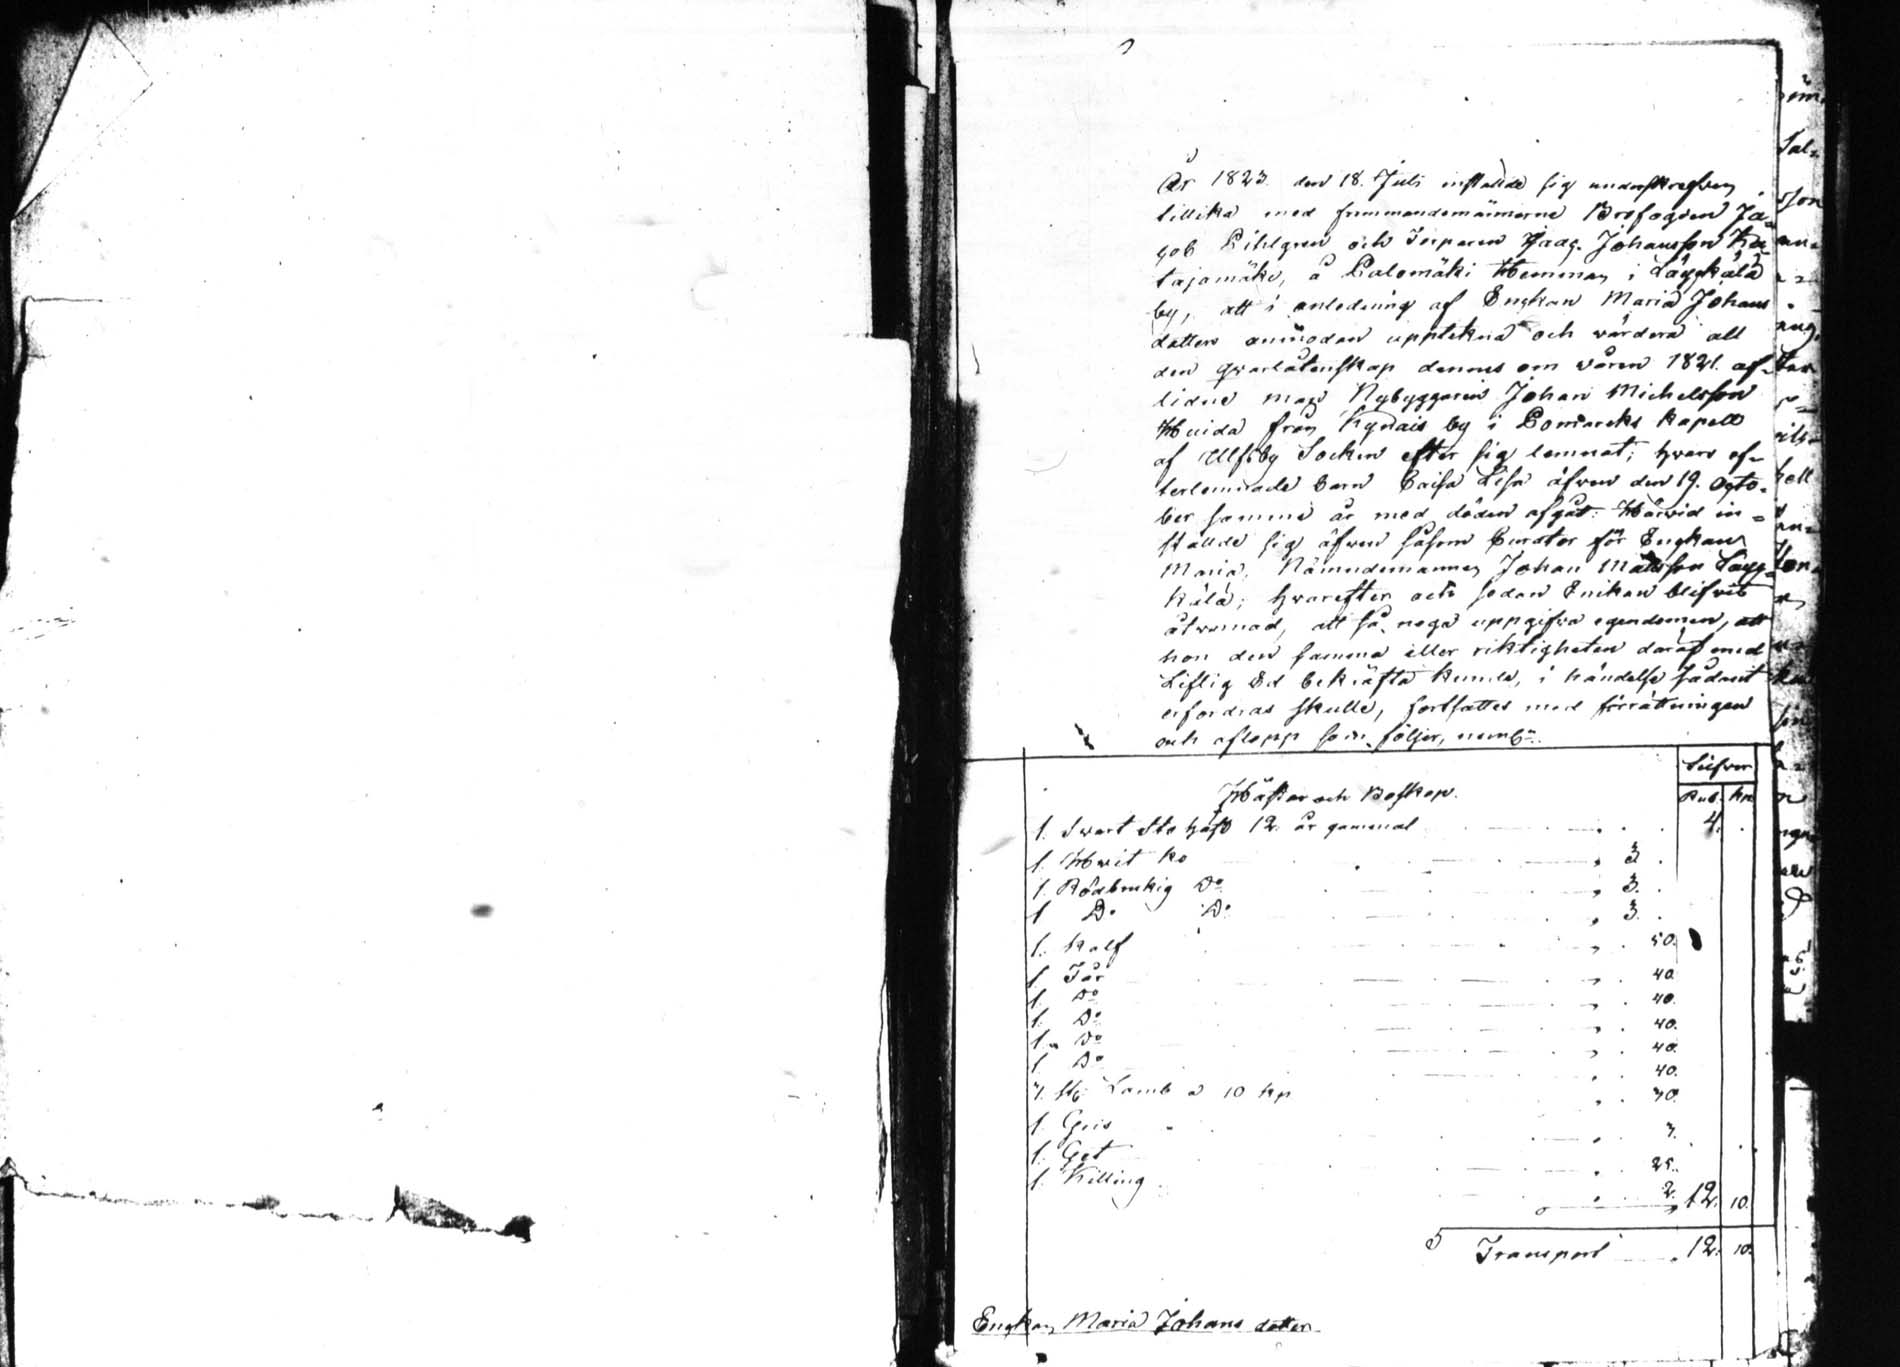 År 1823. den 18. Juli inställde sig underskrefven
tillika med fremmandemännerne Brofogden Ja-
cob Pihlgren och Torparen Isaac Johansson Ka-
tajamäki, å Palomäki Hemman i Lãyskälä
by, att i anledning af Enkan Maria Johans
dotters anmodan upptekna och värdera all
den qvarlåtenskap dennes om våren 1821. af-
lidne man Nybyggaren Johan Michelsson
Huida från Kynäis by i Pomarcks kapell
af Ulfsby Socken efter sig lemnat; hvars ef-
terlemnade barn Caisa Lisa äfven den 19. Octo-
ber samma år med döden afgått. Härvid in-
ställde sig äfven såsom Curator för Enkan
Maria, Nämndemannen Johan Matsson
kälä; hvarefter och sedan Enkan blifvit
åtvarnad, att så noga uppgifva egendomen, att
hon den samma eller riktigheten deraf med
Liflig Ed bekräfta kunde, i händelse sådant
erfordras skulle, fortsattes med förrättningen
och aflopp som följer, nembl:
Silfver
Hästar och Boskap. Rub. kp
1. Svart Sto häst 12. år gammal 4.
1. Hvit ko 3.
1. Rödbrokig Do 3.
1 Do Do 3.
1. Kalf 50.
1. Får 40.
1. Do 40.
1. Do 40.
1. Do 40.
1. Do 40.
7. st. Lamb a 10 kp 70.
1. Gris 3.
1. Get 25.
1. Killing 2. 12. 10.
Transport 12. 10.
Enkan Maria Johans dotter